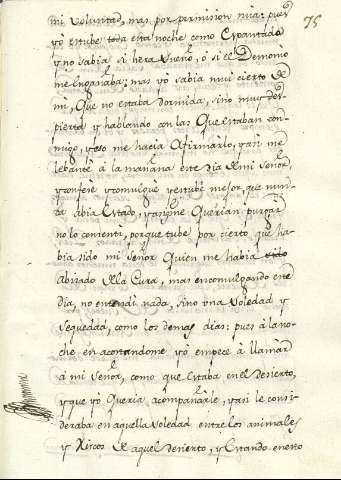 75
mi voluntad, mas por permision suia: pues
yo estube toda esta noche como Espantada
y no sabia si hera sueño, ô si el Demonio
me Engañaba: mas yo sabia mui cierto de
mi, Que no estaba dormida, sino muy des
pierta y hablando con las Que estaban con
migo, y eso me hacia Afirmarlo, y asi me
lebantè à la mañana este dia de mi Señor
y confesè y comulguè y estube mejor, que nun
ca abia Estado, y aunque Querian purgar
no lo consenti, porque tube por cierto que ha
bia sido mi Señor Quien me habia
Abisado de la Cura, mas en comulgando este
dia, no entendi nada, sino una soledad y
sequedad, como los demas dias: pues à la no
che en acostandome yo empecè à llamar
à mi Señor, como que Estaba en el desierto,
y que yo Queria acompañarle, y asi le consi
deraba en aquella soledad entre los animales
y Riscos de aquel desierto, y Estando en esto